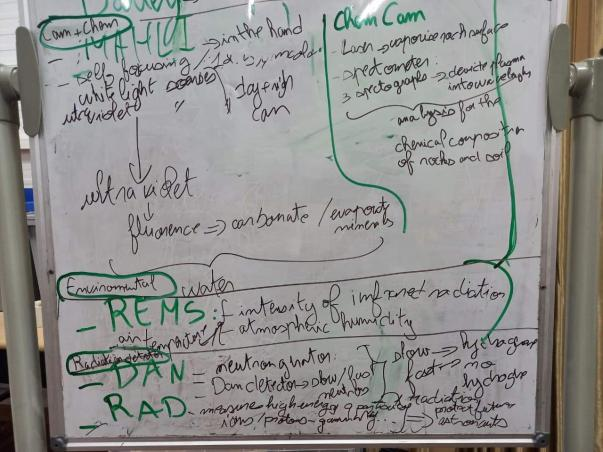 Cam + Chem
- MAHLI => in the hand
- self focusing /
white light
ultraviolet
day + nigh
can
ultraviolet
fluorence => carbonate / evaporite
minerals
Chem Cam
- Laser -> vaporise rock surface
- spectometer:
3 spectographs -> devide plasma
into wavelenghs
analysis for the
chemical composition
of rocks and soil
Environmental
water
- REMS: intensity of infraret radiation
air atmospheric humidity
Radiation detector
- DAN = neutron
Dan detector -> slow /
neutrons
slow => hydrogen
fast -> no
hydrogen
- RAD - measure high-energy radiation
ions / protons - gamma
=> protect future
astronauts